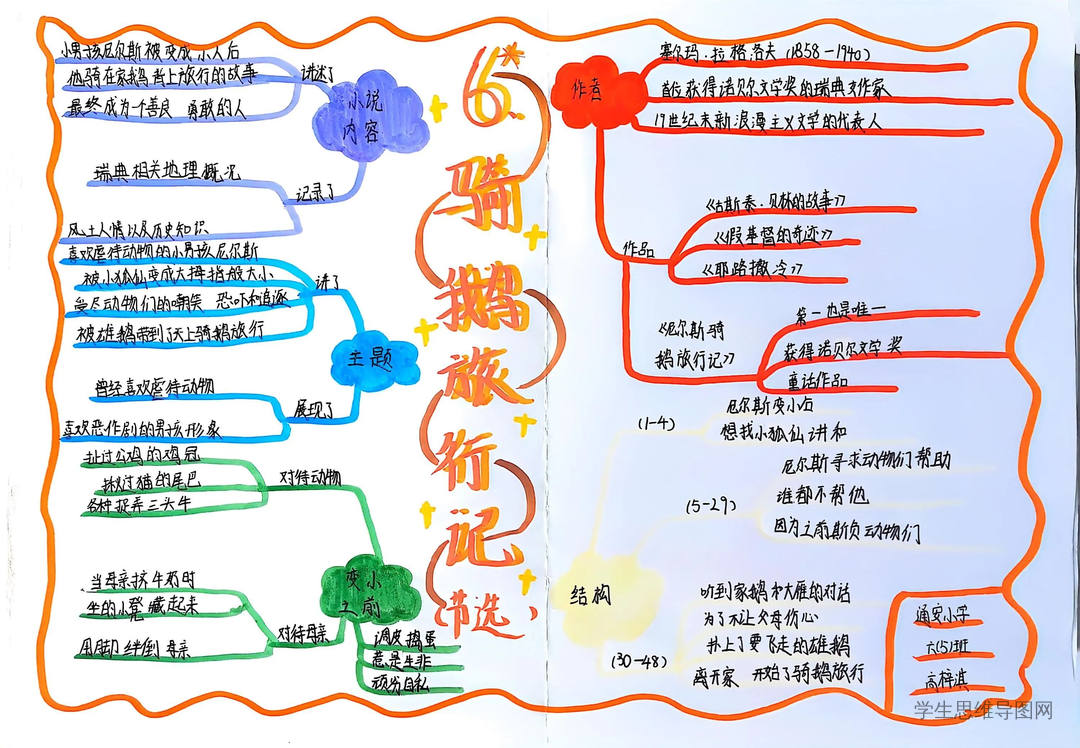 6*
骑
鹅
旅
行
记
(节选)
小说
内容
讲述了
小男孩尼尔斯被变成小人后
他骑在家鹅背上旅行的故事
最终成为一个善良 勇敢的人
记录了
瑞典相关地理概况
风土人情以及历史知识
主题
讲了
喜欢虐待动物的小男孩尼尔斯
被小狐仙变成大拇指般大小
受尽动物们的嘲笑 恐吓和追逐
被雄鹅带到了天上骑鹅旅行
展现了
曾经喜欢虐待动物
喜欢恶作剧的男孩形象
变小
之前
对待动物
扯过公鸡的鸡冠
揪过猫的尾巴
各种捉弄三头牛
对待母亲
当母亲挤牛奶时
牛的小凳藏起来
用脚绊倒母亲
调皮捣蛋
惹是生非
顽劣自私
作者
塞尔玛·拉格洛夫(1858-1940)
首位获得诺贝尔文学奖的瑞典女作家
19世纪末新浪漫主义文学的代表人
作品
《古斯泰·贝林的故事》
《假基督的奇迹》
《耶路撒冷》
《尼尔斯骑
鹅旅行记》
第一也是唯一
获得诺贝尔文学奖
童话作品
结构
(1-4)
尼尔斯变小后
想找小狐仙讲和
(5-29)
尼尔斯寻求动物们帮助
谁都不帮他
因为之前欺负动物们
(30-48)
听到家鹅和大雁的对话
为了不让父母伤心
扑上了要飞走的雄鹅
离开家 开始了骑鹅旅行
通安小学
六(5)班
高梓淇
学生思维导图网